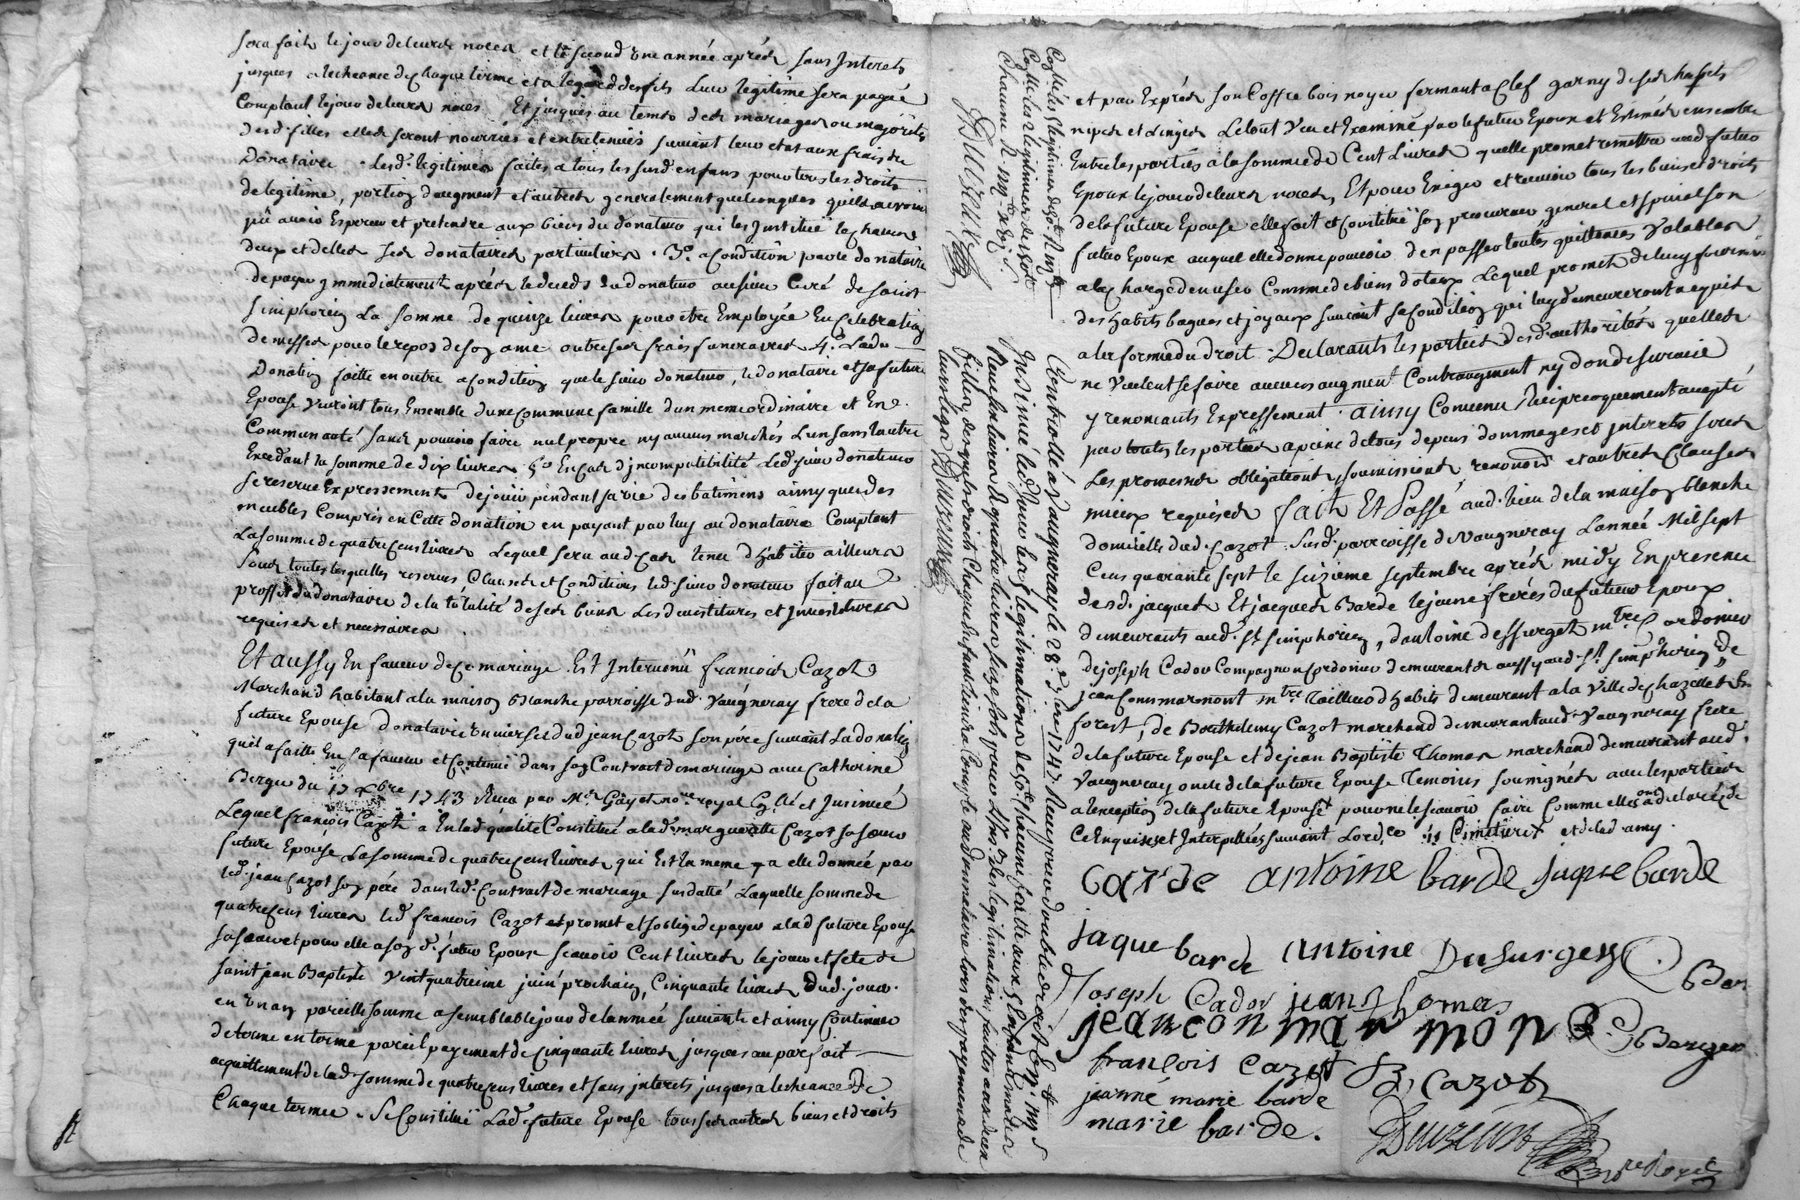 sera fait le jour de leurs noces et le second une année après sans Interets
jusques a lecheance de chaque terme et a legard des fils Leur legitime sera payée
Comptant le jour de leurs noces. Et jusques au temps des mariages ou majorités
desd. filles elles seront nourries et entretenues suivant leur etat aux frais du
Donataire. Lesd. legitimes faites a tous les susd. enfans pour tous les droits
de legitime, portion daugment et autres generalement quelconques quils
avoir Esperer et pretendre aux biens du donateur qui les Institue
et delles ses donataires particuliers. 3.° a condition par le donataire
de payer immediatement après le deceds du donateur au sieur Curé de saint
simphorien La somme de quinze livres pour être Employée En Celebration
de messes pour le repos de son ame outre ses frais funeraires 4.° Lad.
Donation faitte en outre a condition que le sieur donateur, le donataire et sa future
Epouse vivront tous Ensemble dune commune famille dun meme ordinaire et En
Communauté sans pouvoir faire nul propre ny aucuns marchés Lun sans lautre
Excedant la somme de dix livres 5.° En cas dincompatibilité Led. sieur donateur
se reserve Expressement de jouir pendant sa vie des batimens ainsy que des
meubles Compris en Cette donation en payant par luy au donataire Comptant
La somme de quatre cens livres Lequel sera aud. cas tenu dhabiter ailleurs
Sous toutes lesquelles reserves Clauses et Conditions led. sieur donateur fait au
proffit du donataire de la totalité de ses biens Les devestitures et Investitures
requises et necessaires.
Et aussy En faveur de Ce mariage Est Intervenu françois Cazot
Marchand habitant a la maison Blanche parroisse dud. Vaugneray frere de la
future Epouse donataire universel dud. jean Cazot son père suivant La donation
quil a faitte En sa faveur et contenue dans son Contrat de mariage avec Catherine
Berger du 17 xbre 1743 Reçu par Mr. Gayet nore royal Con̄lé et Insinué
Lequel françois Cazot a En lad. qualité Constitué a lad. marguerite Cazot sa sœur
future Epouse La somme de quatre cens livres qui Est la meme a elle donnée par
led. jean Cazot son père dans led. Contrat de mariage susdatté Laquelle somme de
quatre cens livres led. françois Cazot promet et soblige de payer a lad. future Epouse
sa sœur et pour elle a son d. futur Epoux scavoir Cent livres le jour et fete de
saint jean Baptiste vint quatrieme juin prochain, Cinquante livres dud. jour
en un an pareille somme a semblable jour de lannée suivante et ainsy Continuer
de terme en terme pareil payement de cinquante livres jusques au parfait
acquittement de lad. somme de quatre cens livres et sans interets jusques a lecheance de
Chaque terme. Se Constitue Lad. future Epouse tous ses autres biens et droits
Con̄lé les legitimes
Chacune
Duvzeun
Controllé a Vaugneray le 28e. 7bre 1747. Reçu pour double droit
Insinué led. jour les legitimations
Reçu
filles desquels droits Chaque Enfant tiendra Compte aud. donataire lors des payemens de
leurs legs Duvzeun
et par Exprès son Coffre bois noyer fermant a Clef garny de ses habits
nipes et Linges Le tout vu et Examiné par le futur Epoux et Estimés ensemble
Entre les parties a la somme de Cent Livres quelle promet remettre aud. futur
Epoux le jour de leurs noces, Et pour Exiger et recevoir tous les biens et droits
de la future Epouse elle fait et constitue son procureur general et special son
futur Epoux auquel elle donne pouvoir den passer toutes quittances valables
a la charge den user Comme de biens dotaux Lequel promet de luy fournir
des habits bagues et joyaux suivant sa condition qui luy demeureront acquis
a la forme du droit. Declarants les parties desd. authorités quelles
ne veulent se faire aucun augment Contraugment ny don de survie
y renoncants Expressement. ainsy Convenu Reciproquement accepté
par toutes les parties a peine de tous depens dommages et interets sous
Les promesses obligations, soumissions, renonons et autres Clauses
mieux requises fait Et Passé aud. lieu de la maison blanche
domicille dud. Cazot susd. parroisse de Vaugneray Lannée Mil sept
Cens quarante sept le seizieme septembre après midy En presence
desd. jacques Et jacques Barde le jeune frères du futur Epoux
demeurants aud. St. simphorien, dantoine dessurget mtre Cordonier
de joseph Cadou Compagnon Cordonier demeurants aussy aud. St. simphorien, de
jean Consmarmont mtre tailleur dhabits demeurant a la ville de chazelles En
forest, de Barthelemy Cazot marchand demeurant aud. Vaugneray frere
de la future Epouse et de jean Baptiste Thomas marchand demeurant aud.
Vaugneray oncle de la future Epouse Temoins soussignés avec les parties
a lexception de la future Epouse pour ne le scavoir faire Comme elle a declaré de
Ce Enquise et Interpellée suivant Lordce
Carde antoine barde juque barde
jaque barde antoine Desurgey
Joseph Cadou jean thomas Ber
jean con mar mon Berger
françois Cazot B, Cazot
jeanne marie barde
marie barde. Duvzeun
nore Royal